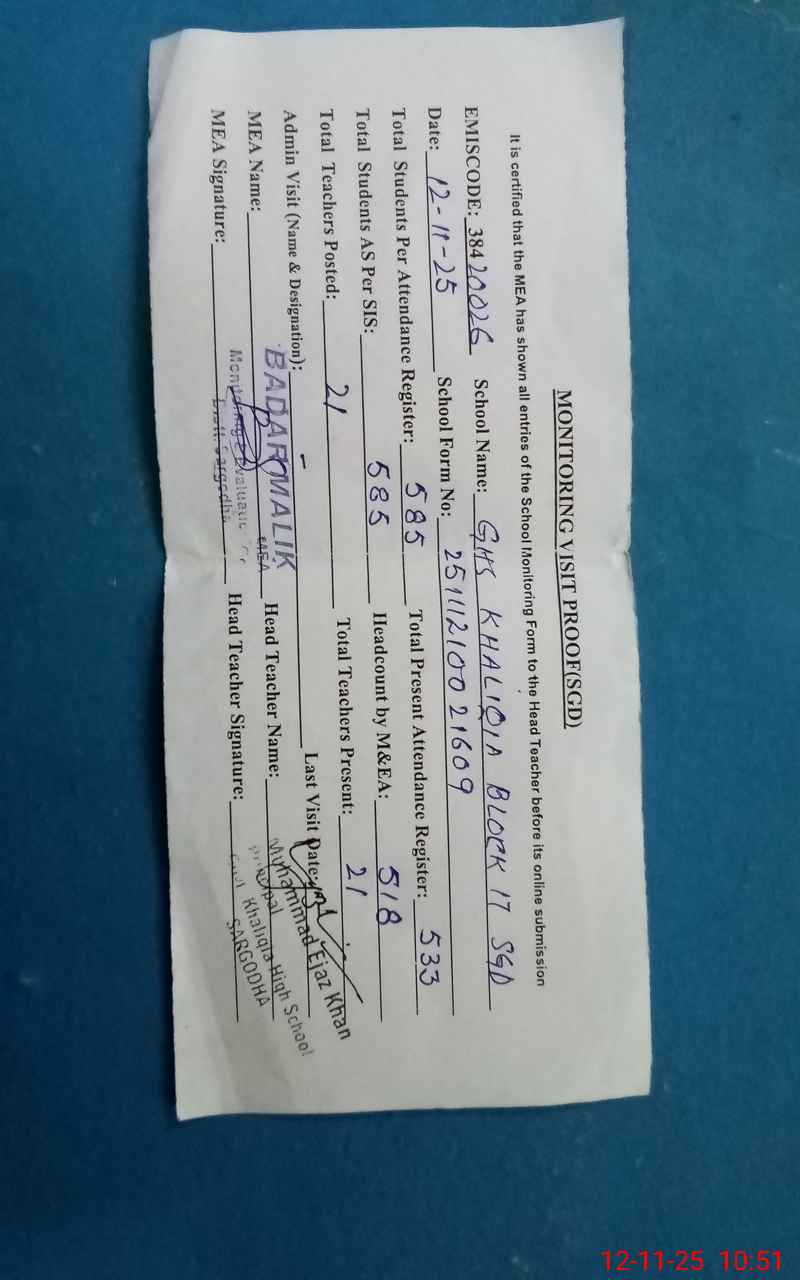 MONITORING VISIT PROOF(SGD)
It is certified that the MEA has shown all entries of the School Monitoring Form to the Head Teacher before its online submission
EMISCODE: 38420026 School Name: GHS KHALIQIA BLOCK 17 SGD
Date: 12-11-25 School Form No: 25111210021609
Total Students Per Attendance Register: 585 Total Present Attendance Register: 533
Total Students AS Per SIS: 585 Headcount by M&EA: 518
Total Teachers Posted: 21 Total Teachers Present: 21
Admin Visit (Name & Designation): - Last Visit Date:
MEA Name: BADAR MALIK MEA Head Teacher Name: Muhammad Ejaz Khan
Principal
MEA Signature: Monitoring & Sargodha Head Teacher Signature: Khaliqia High School
SARGODHA
12-11-25 10:51